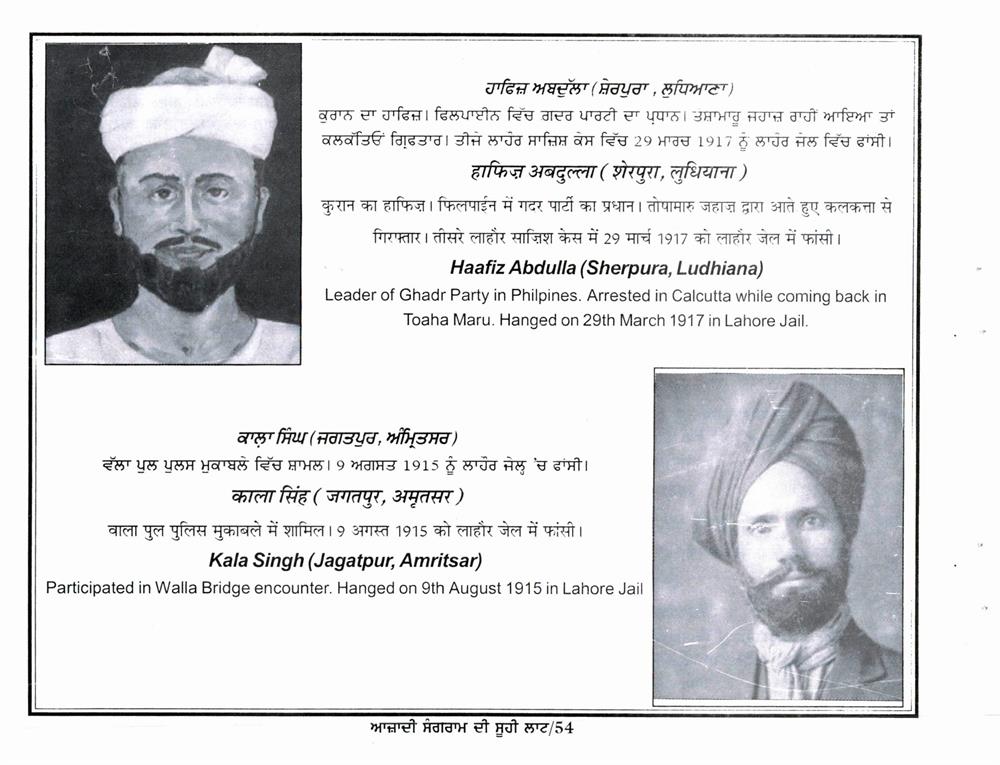 ਹਾਫਿਜ਼ ਅਬਦੁੱਲਾ (ਸ਼ੇਰਪੁਰਾ , ਲੁਧਿਆਣਾ)
ਕੁਰਾਨ ਦਾ ਹਾਫਿਜ਼। ਫਿਲਪਾਈਨ ਵਿੱਚ ਗਦਰ ਪਾਰਟੀ ਦਾ ਪ੍ਰਧਾਨ। ਤਸ਼ਾਮਾਰੂ ਜਹਾਜ਼ ਰਾਹੀਂ ਆਇਆ ਤਾਂ
ਕਲਕੱਤਿਓਂ ਗ੍ਰਿਫਤਾਰ। ਤੀਜੇ ਲਾਹੌਰ ਸਾਜ਼ਿਸ਼ ਕੇਸ ਵਿੱਚ 29 ਮਾਰਚ 1917 ਨੂੰ ਲਾਹੌਰ ਜੇਲ ਵਿੱਚ ਫਾਂਸੀ।
हाफिज़ अबदुल्ला ( शेरपुरा, लुधियाना )
कुरान का हाफिज़। फिलपाईन में गदर पार्टी का प्रधान। तोषामारु जहाज़ द्वारा आते हुए कलकत्ता से
गिरफ्तार। तीसरे लाहौर साज़िश केस में 29 मार्च 1917 को लाहौर जेल में फांसी।
Haafiz Abdulla (Sherpura, Ludhiana)
Leader of Ghadr Party in Philpines. Arrested in Calcutta while coming back in
Toaha Maru. Hanged on 29th March 1917 in Lahore Jail.
ਕਾਲ਼ਾ ਸਿੰਘ (ਜਗਤਪੁਰ, ਅੰਮ੍ਰਿਤਸਰ)
ਵੱਲਾ ਪੁਲ ਪੁਲਸ ਮੁਕਾਬਲੇ ਵਿੱਚ ਸ਼ਾਮਲ। 9 ਅਗਸਤ 1915 ਨੂੰ ਲਾਹੌਰ ਜੇਲ੍ਹ 'ਚ ਫਾਂਸੀ।
काला सिंह ( जगतपुर, अमृतसर )
वाला पुल पुलिस मुकाबले में शामिल। 9 अगस्त 1915 को लाहौर जेल में फांसी।
Kala Singh (Jagatpur, Amritsar)
Participated in Walla Bridge encounter. Hanged on 9th August 1915 in Lahore Jail
ਆਜ਼ਾਦੀ ਸੰਗਰਾਮ ਦੀ ਸੂਹੀ ਲਾਟ/54